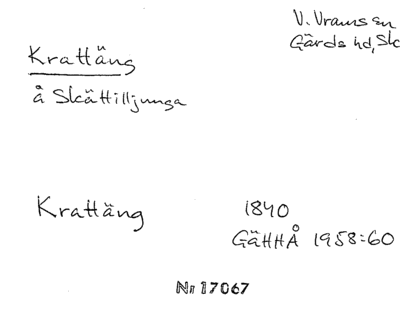 V. Vrams sn
Gärds hd, Sk
Krattäng
å Skättilljunga
Krattäng
1840
GÄHHÅ 1958:60
Nr 17067